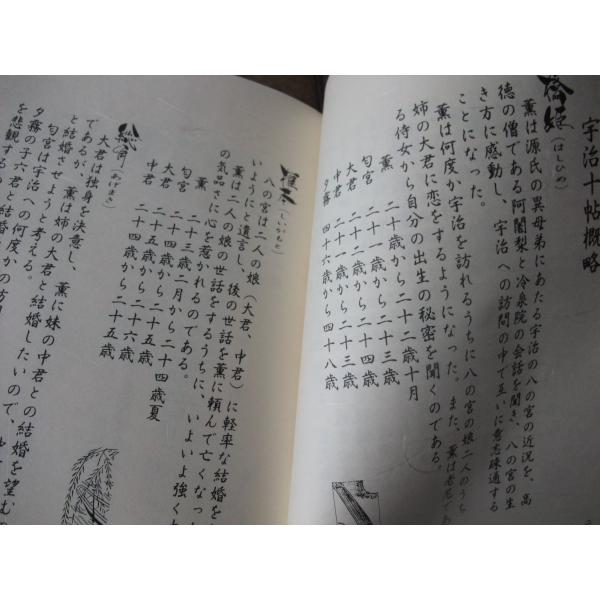 宇治十帖概略
橋姫(はしひめ)
薫は源氏の異母弟にあたる宇治の八の宮の近況を、高
徳の僧である阿闍梨と冷泉院の会話を聞き、八の宮の生
き方に感動し、宇治への訪問の中で互いに意志疎通する
ことになった。
薫は何度か宇治を訪れるうちに八の宮の娘二人のうち
姉の大君に恋をするようになった。また、薫は老尼であ
る侍女から自分の出生の秘密を聞くのである。
薫 二十歳から二十二歳十月
匂宮 二十一歳から二十三歳
大君 二十二歳から二十四歳
中君 二十歳から二十二歳
夕霧 四十六歳から四十八歳
椎本(しいがもと)
八の宮は二人の娘(大君、中君)に軽率な結婚を
いようにと遺言し、後の世話を薫に頼んで亡くなっ
薫は二人の娘の世話をするうちに、いよいよ強く
の気品さに心を惹かれるのである。
薫 二十三歳二月から二十四歳夏
匂宮 二十四歳から二十五歳
大君 二十五歳から二十六歳
中君 二十四歳から二十五歳
総角(あげまき)
大君は独身を決意し、薫に妹の中君との結婚を望む
であるが、薫は姉の大君と結婚したいので、
と結婚させようと考える。
匂宮は宇治への何度かの訪
夕霧の子六君と結婚
を悲観する